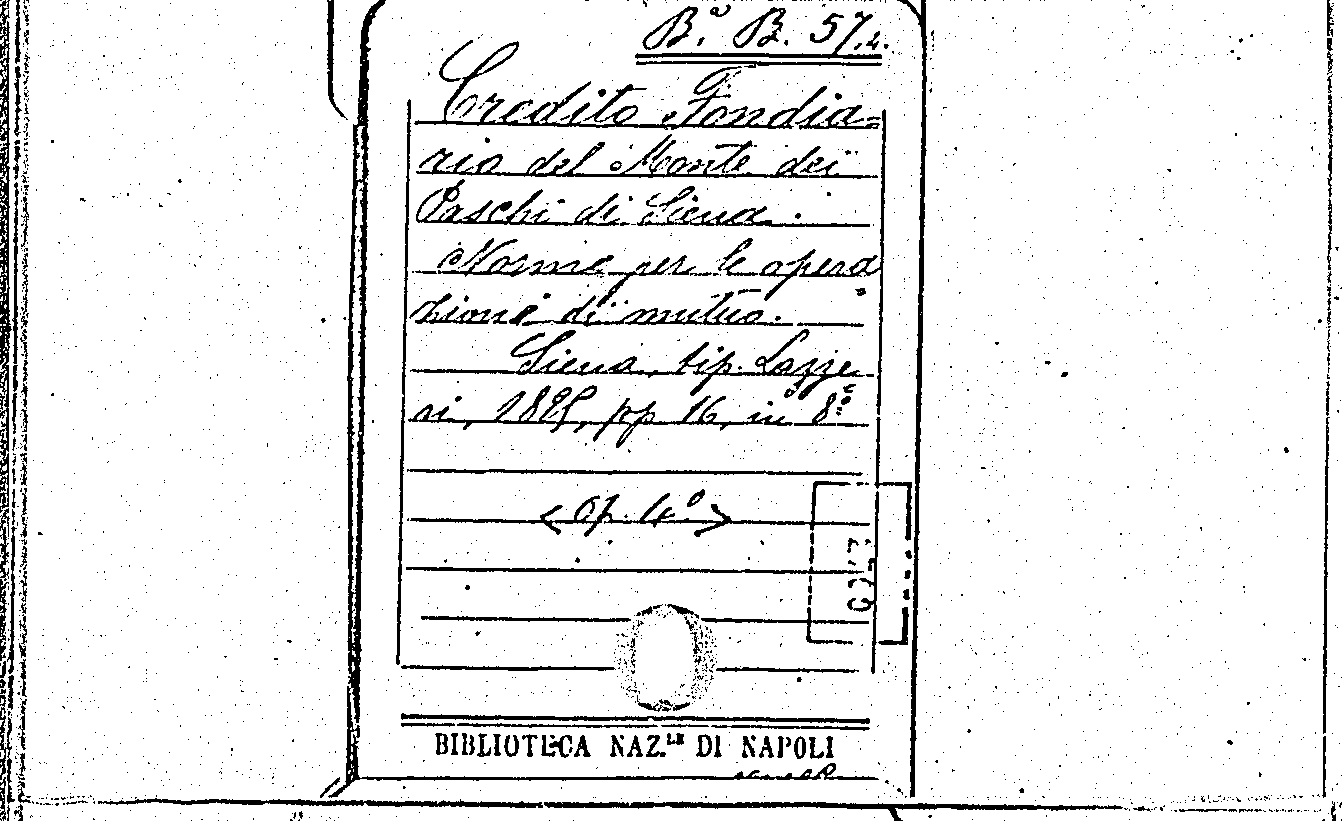 Bª B. 57.
Credito Fondia=
rio del Monte dei
Paschi di Siena.
Norme per le opera
zioni di mutuo.
Siena, tip. Lazze
ri, pp 16, in 8º
<Op. 4º>
BIBLIOTECA NAZ.LE DI NAPOLI